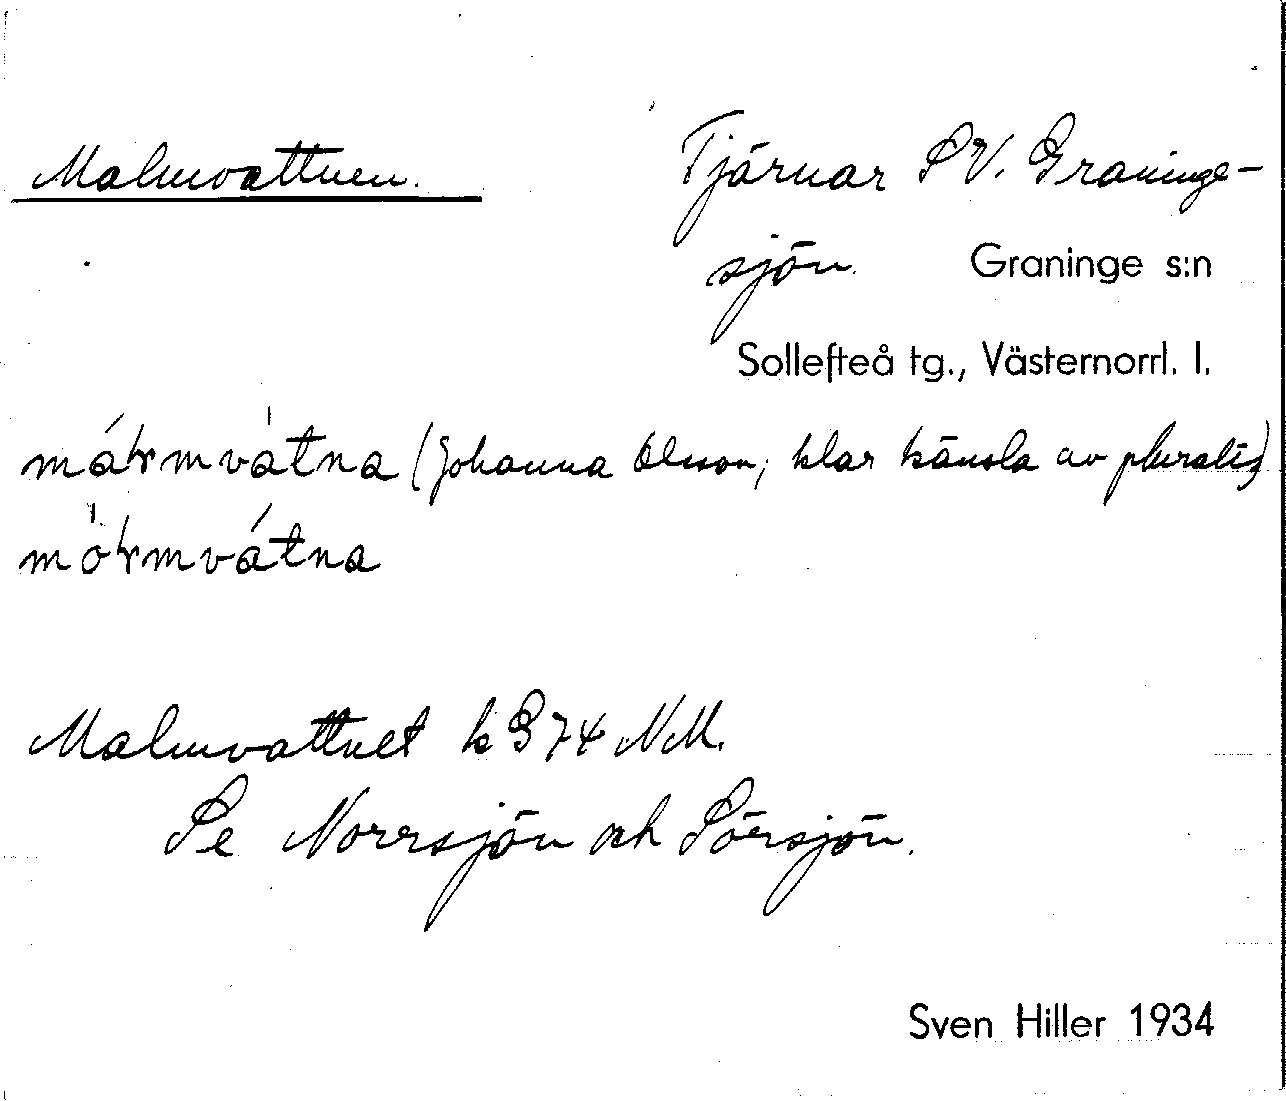 Malmvattnen.
Tjärnar SV. Graninge-
sjön. Graninge s:n
Sollefteå tg., Västernorrl. l.
(Johanna Olsson; klar känsla av pluralis)
Malmvattnet k G 74 NM.
Se Norrsjön och Sörsjön.
Sven Hiller 1934